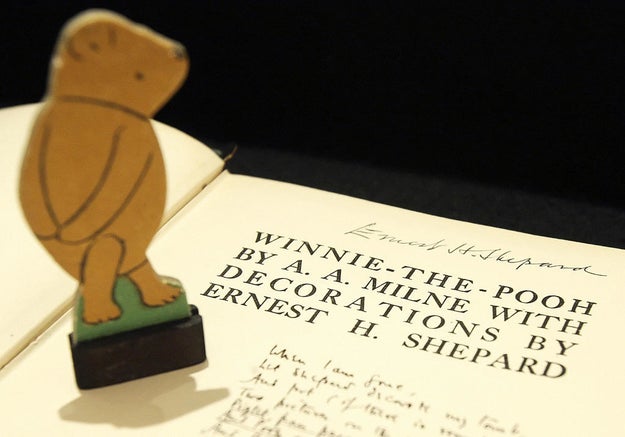 Ernest H. Shepard
WINNIE-THE-POOH
BY A. A. MILNE WITH
DECORATIONS BY
ERNEST H. SHEPARD
When I am gone,
Let Shepard decorate my tomb
And put (if there is room)
Two pictures on the